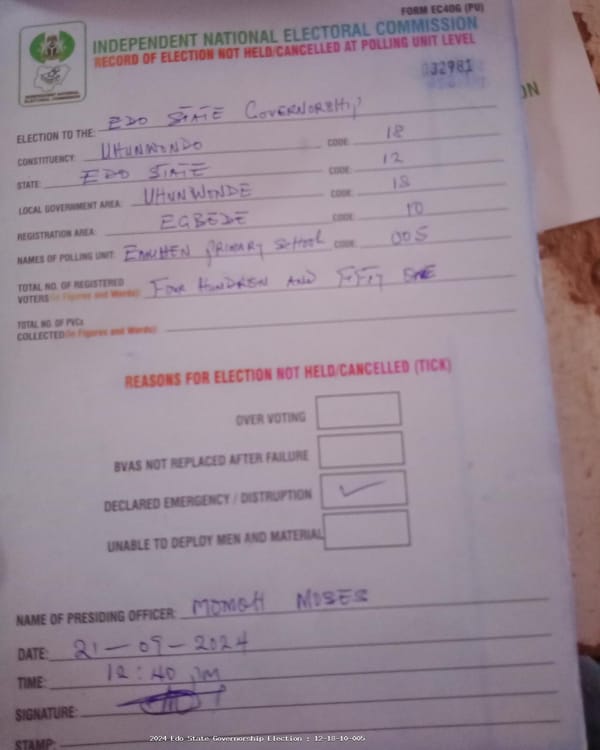 FORM EC40G (PU)
INDEPENDENT NATIONAL ELECTORAL COMMISSION
RECORD OF ELECTION NOT HELD/CANCELLED AT POLLING UNIT LEVEL
INDEPENDENT NATIONAL ELECTORAL COMMISSION
032981
ON
ELECTION TO THE: EDO STATE GOVERNORSHIP
CONSTITUENCY: UHUNWONDO CODE: 18
STATE: EDO STATE CODE: 12
LOCAL GOVERNMENT AREA: UHUNWONDE CODE: 18
REGISTRATION AREA: EGBEDE CODE: 10
NAMES OF POLLING UNIT: EMUHEN PRIMARY SCHOOL CODE: 005
TOTAL NO. OF REGISTERED
VOTERS (In Figures and Words): FOUR HUNDRED AND FIFTY
TOTAL NO. OF PVCs
COLLECTED (In Figures and Words):
REASONS FOR ELECTION NOT HELD/CANCELLED (TICK)
OVER VOTING
BVAS NOT REPLACED AFTER FAILURE
DECLARED EMERGENCY / DISTRUPTION ✓
UNABLE TO DEPLOY MEN AND MATERIAL
NAME OF PRESIDING OFFICER: MOMOH MOSES
DATE: 21-09-2024
TIME: 12:40 PM
SIGNATURE:
STAMP:
2024 Edo State Governorship Election : 12-18-10-005